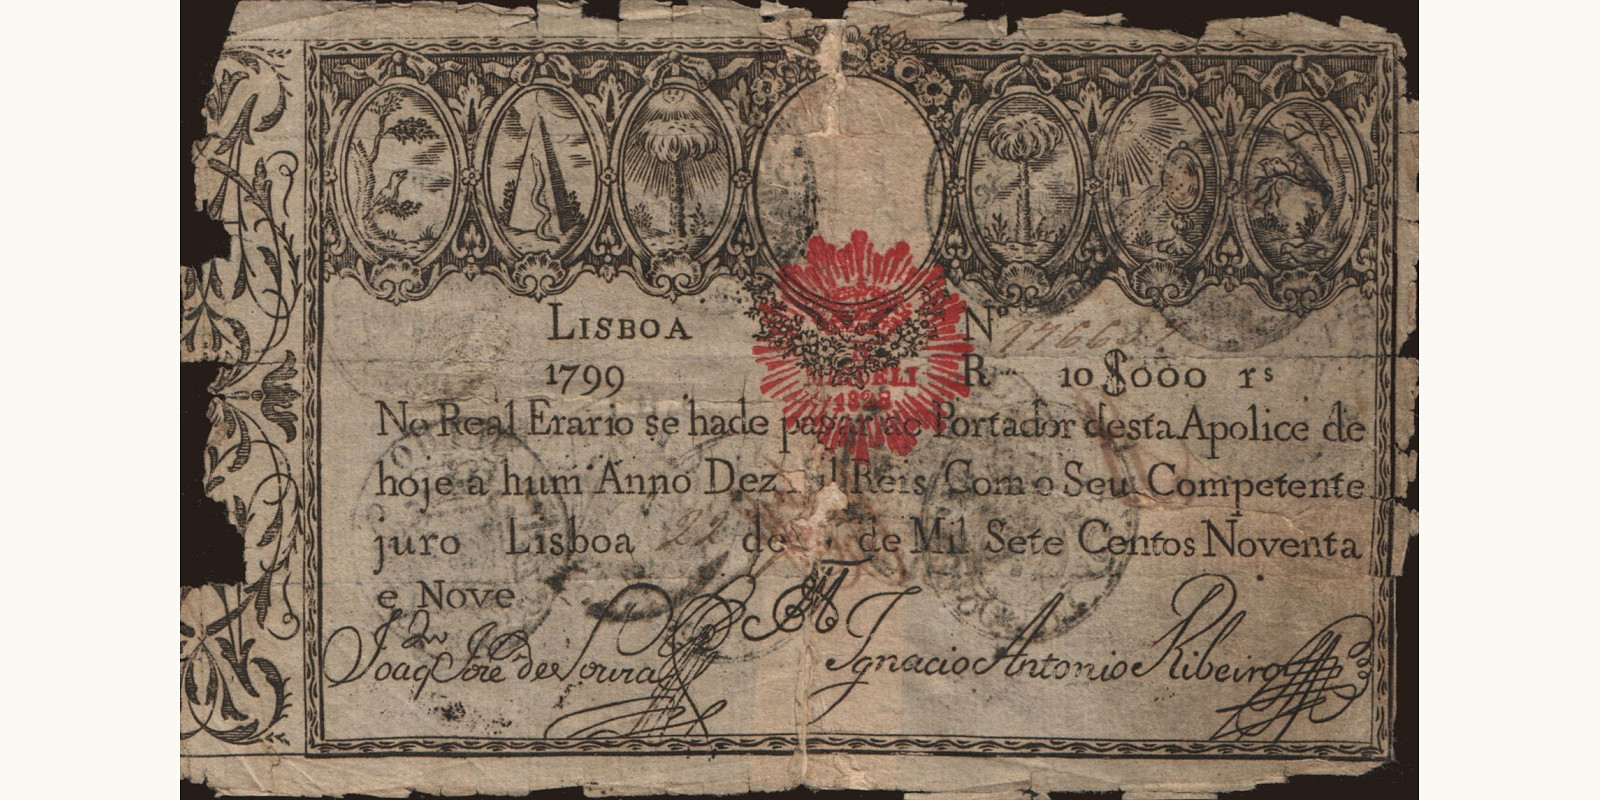 LISBOA
1799
Nº
R 10$000 rs
No Real Erario se hade pagar ao Portador desta Apolice de
hoje a hum Anno Dez Mil Reis Com o Seu Competente
juro Lisboa 22 de de Mil Sete Centos Noventa
e Nove
Ignacio Antonio Ribeiro